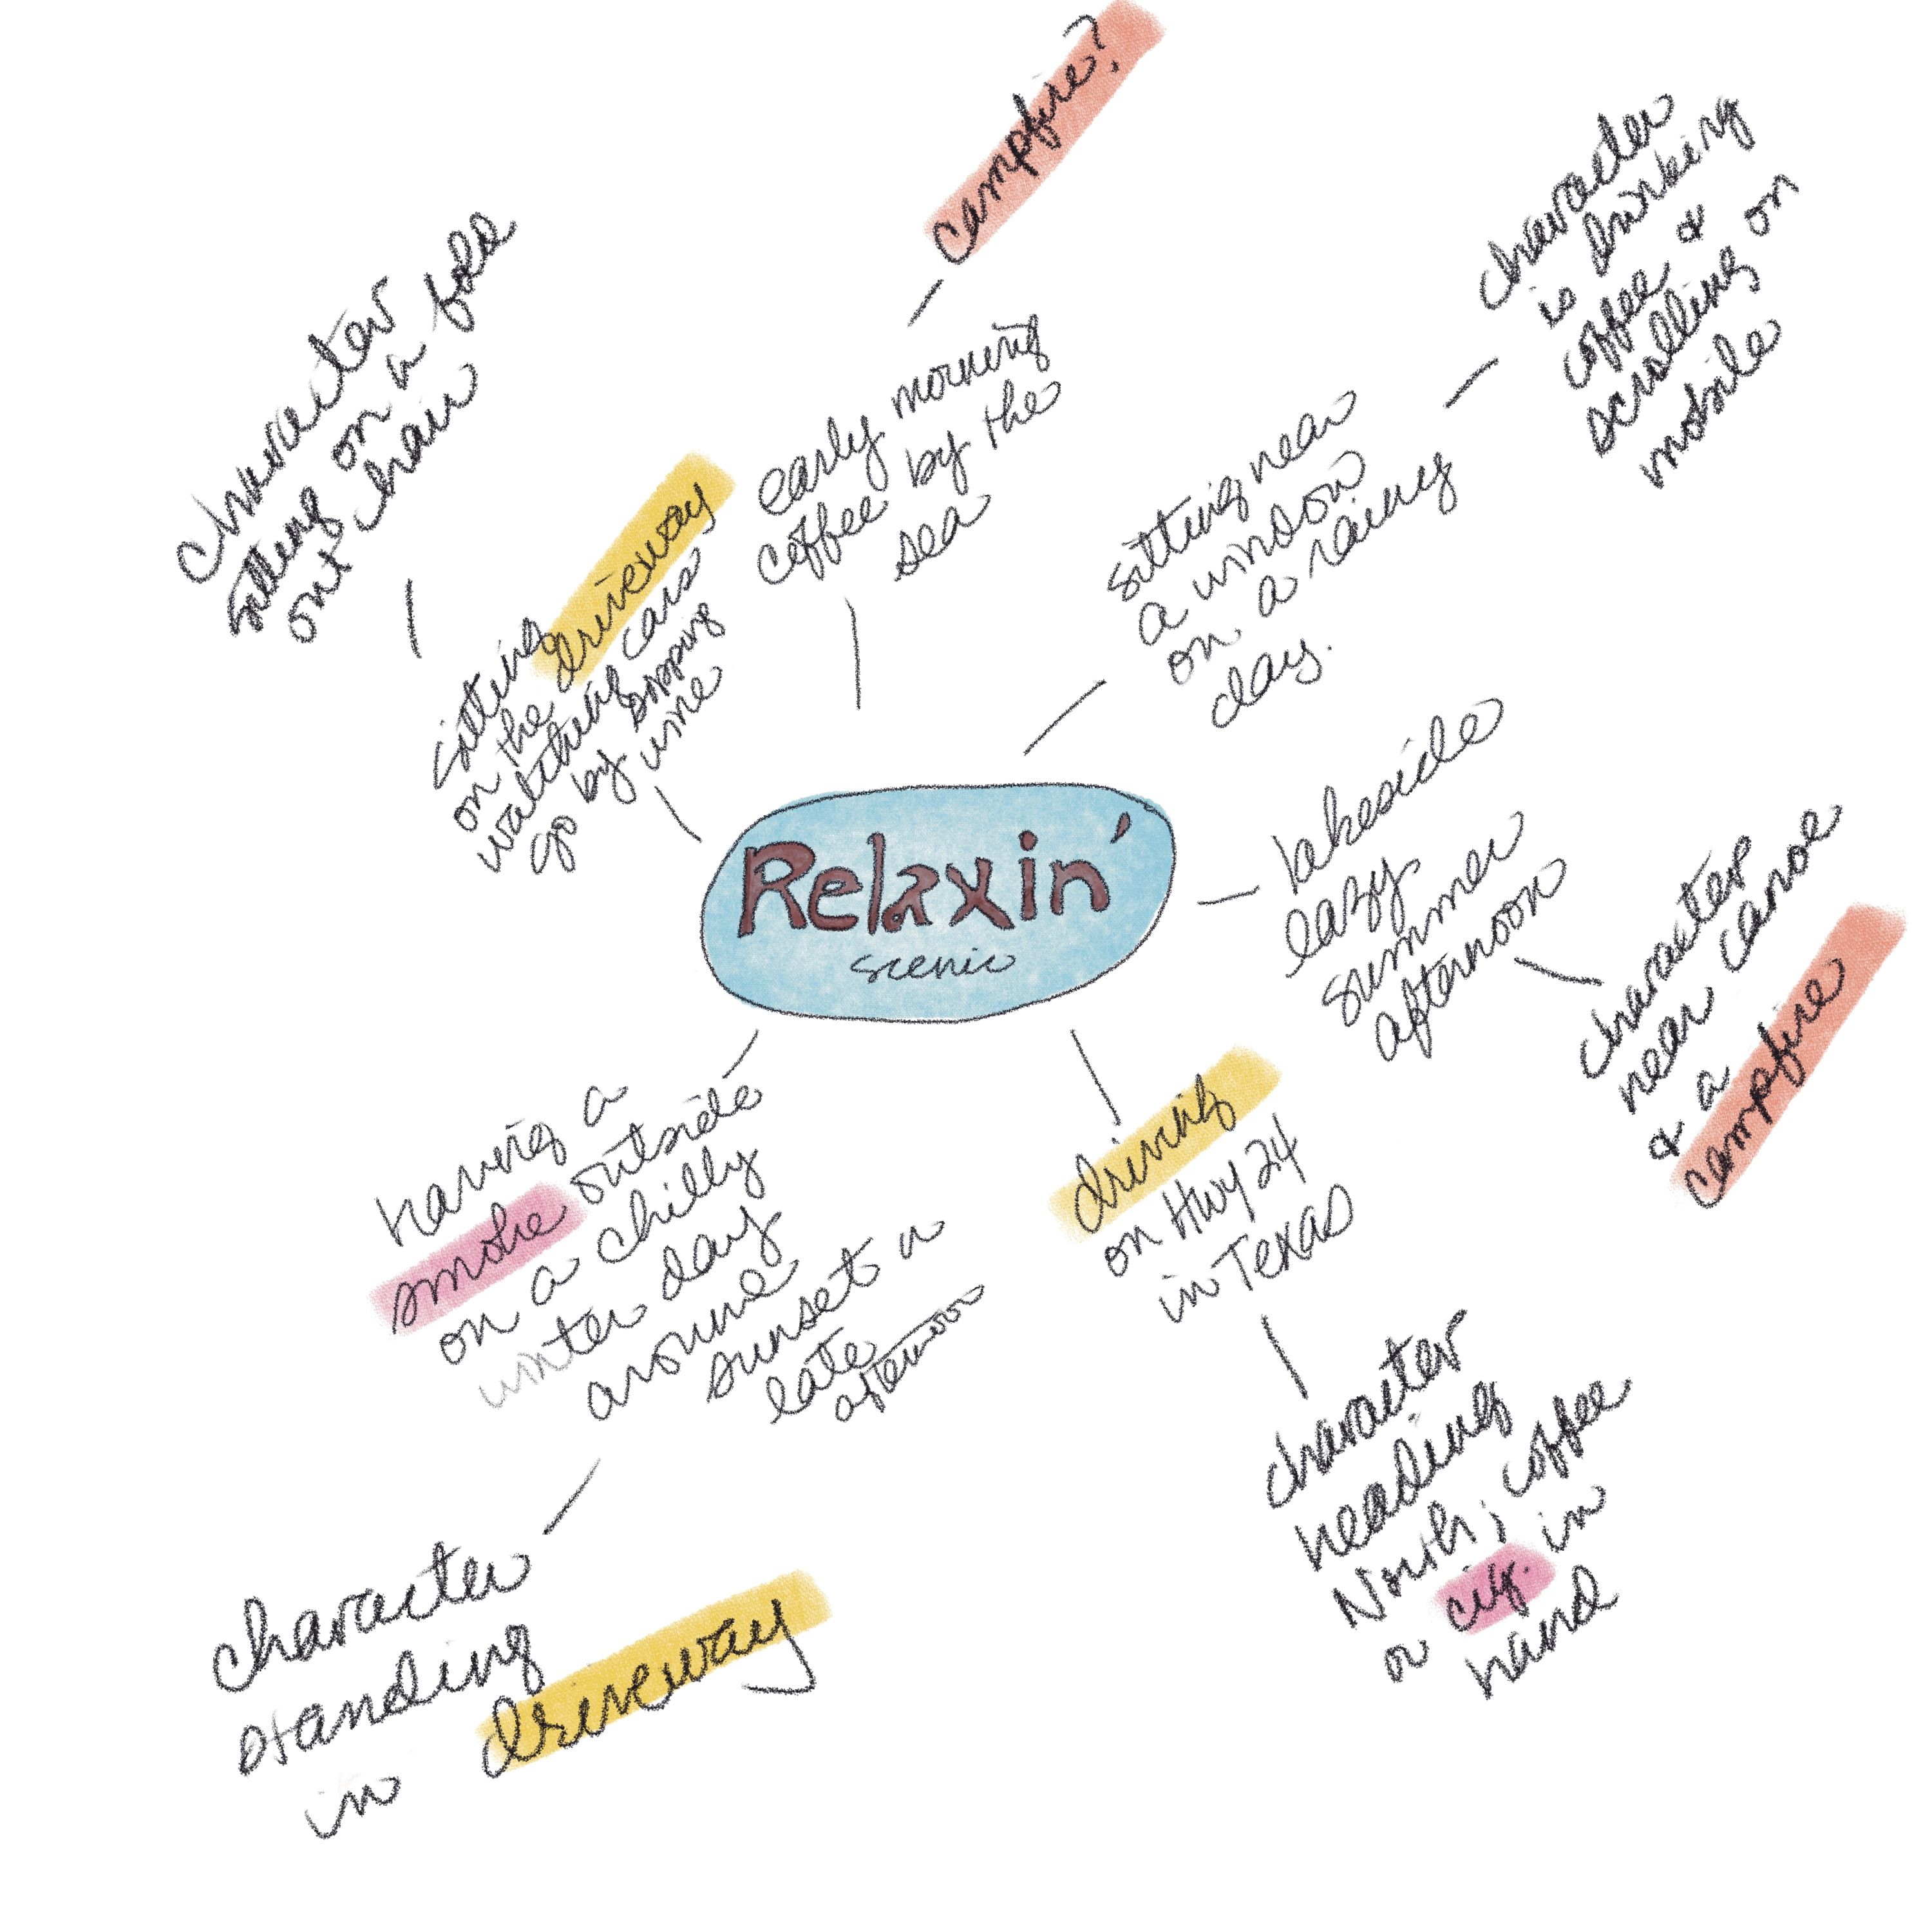 Relaxin'
scenic
campfire?
early morning
coffee by the
sea
character
is drinking
coffee &
scrolling on
mobile
sitting near
a window
on a rainy
day.
lakeside
lazy
summer
afternoon
character
near canoe
& a
campfire
driving
on Hwy 24
in Texas
character
heading
North; coffee
or cig. in
hand
having a
smoke outside
on a chilly
winter day
around
sunset or
late
afternoon
character
standing
in driveway
sitting
on the driveway
watching cars
go by sipping
wine
character
sitting on a fold
out chair